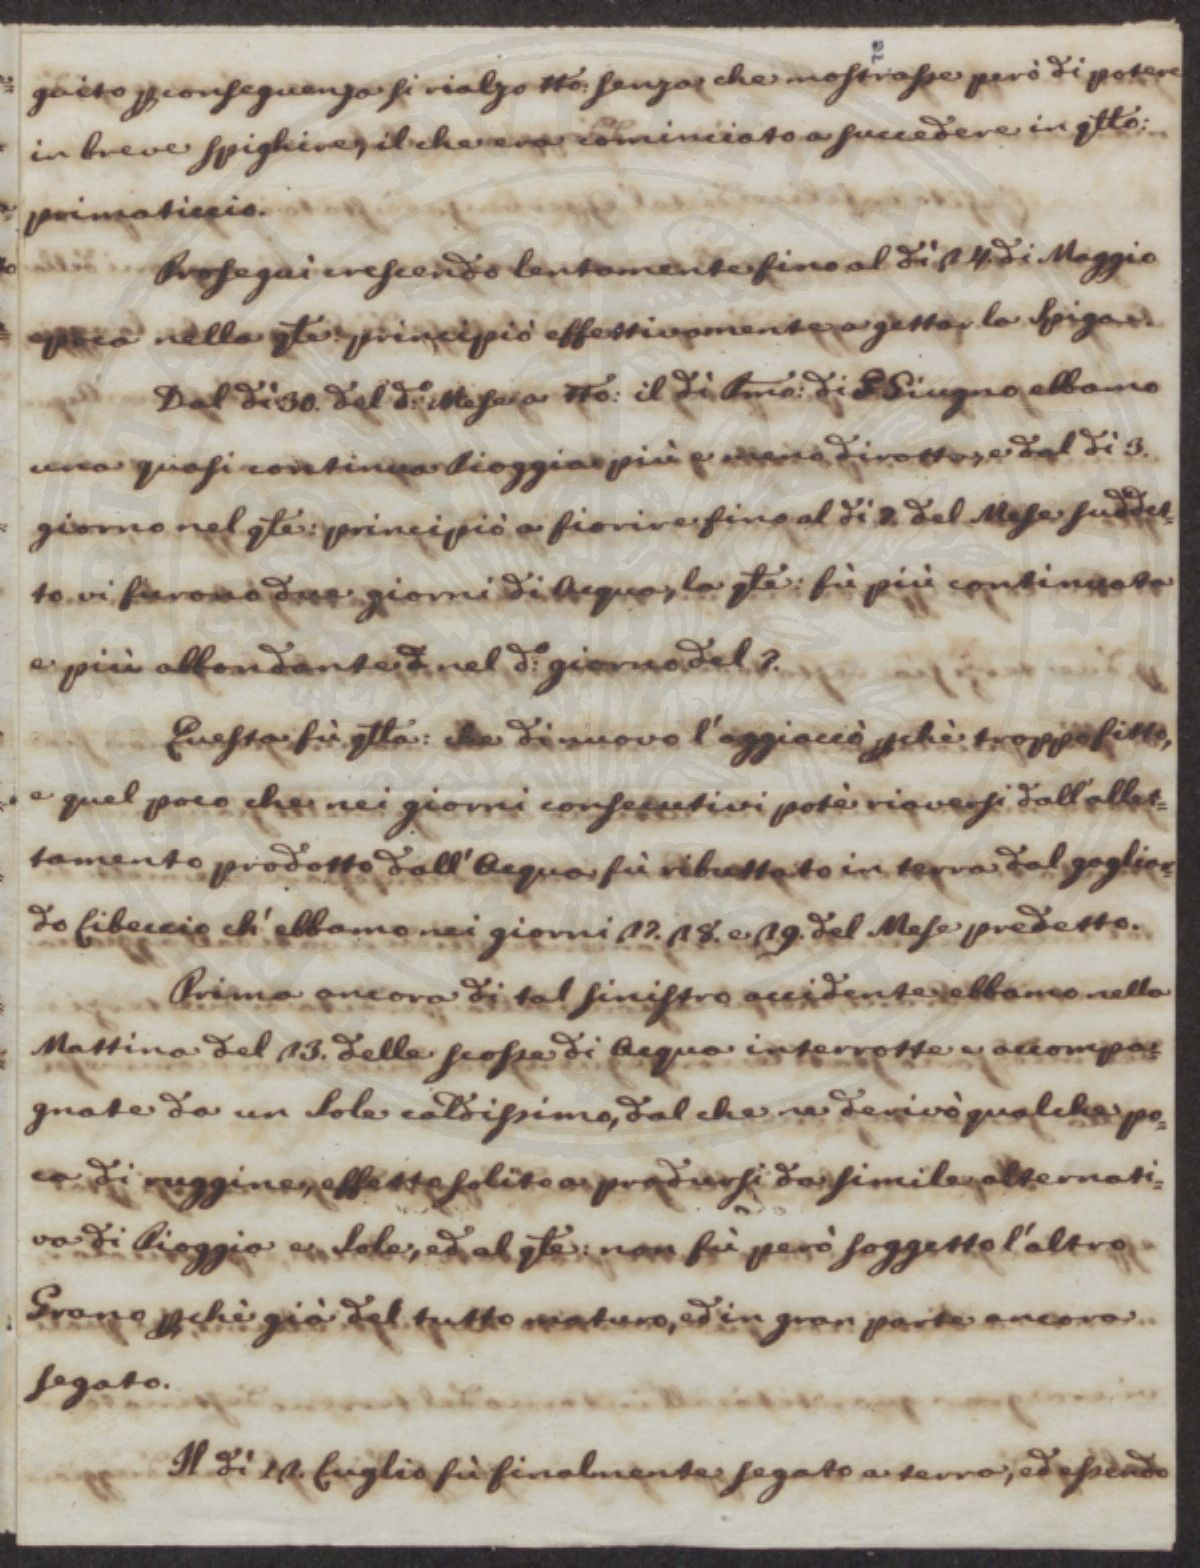 2
guito p conseguenza si rialzo tto: senza che mostrasse però di potere
in breve spighire, il che era cominciato a succedere in qllo:
primaticcio.
Proseguì crescendo lentamente fino al dì 24 di Maggio
epoca nella qle: principiò effettivamente a gettar la spiga.
Dal dì 30. del do: Mese a tto: il dì Pmo: di Giugno ebbamo
una quasi continua Pioggia più e meno dirotta, e dal dì 3.
giorno nel qle: principiò a fiorire fino al dì 7. del Mese suddet=
to vi furono due giorni di Acqua, la qle: fù più continuata
e più abbondante nel do: giorno del 7.
Questa fù qlla: che di nuovo l'aggiaccò pchè troppo fitto,
e quel poco che nei giorni consecutivi potè riaversi dall'allet=
tamento prodotto dall'Acqua fù ributtato in terra dal gagliar=
do Libeccio ch'ebbamo nei giorni 17. 18. e 19. del Mese predetto.
Prima ancora di tal sinistro accidente ebbamo nella
Mattina del 13. delle scosse di Acqua interrotte e accompa=
gnate da un Sole caldissimo, dal che ne derivò qualche po=
ca di ruggine, effetto solito a prodursi da simile alternati=
va di Pioggia e Sole, ed al qle: non fù però soggetto l'altro
Grano pchè già del tutto maturo, ed in gran parte ancora
segato.
Il dì Luglio fù finalmente segato a terra, ed essendo